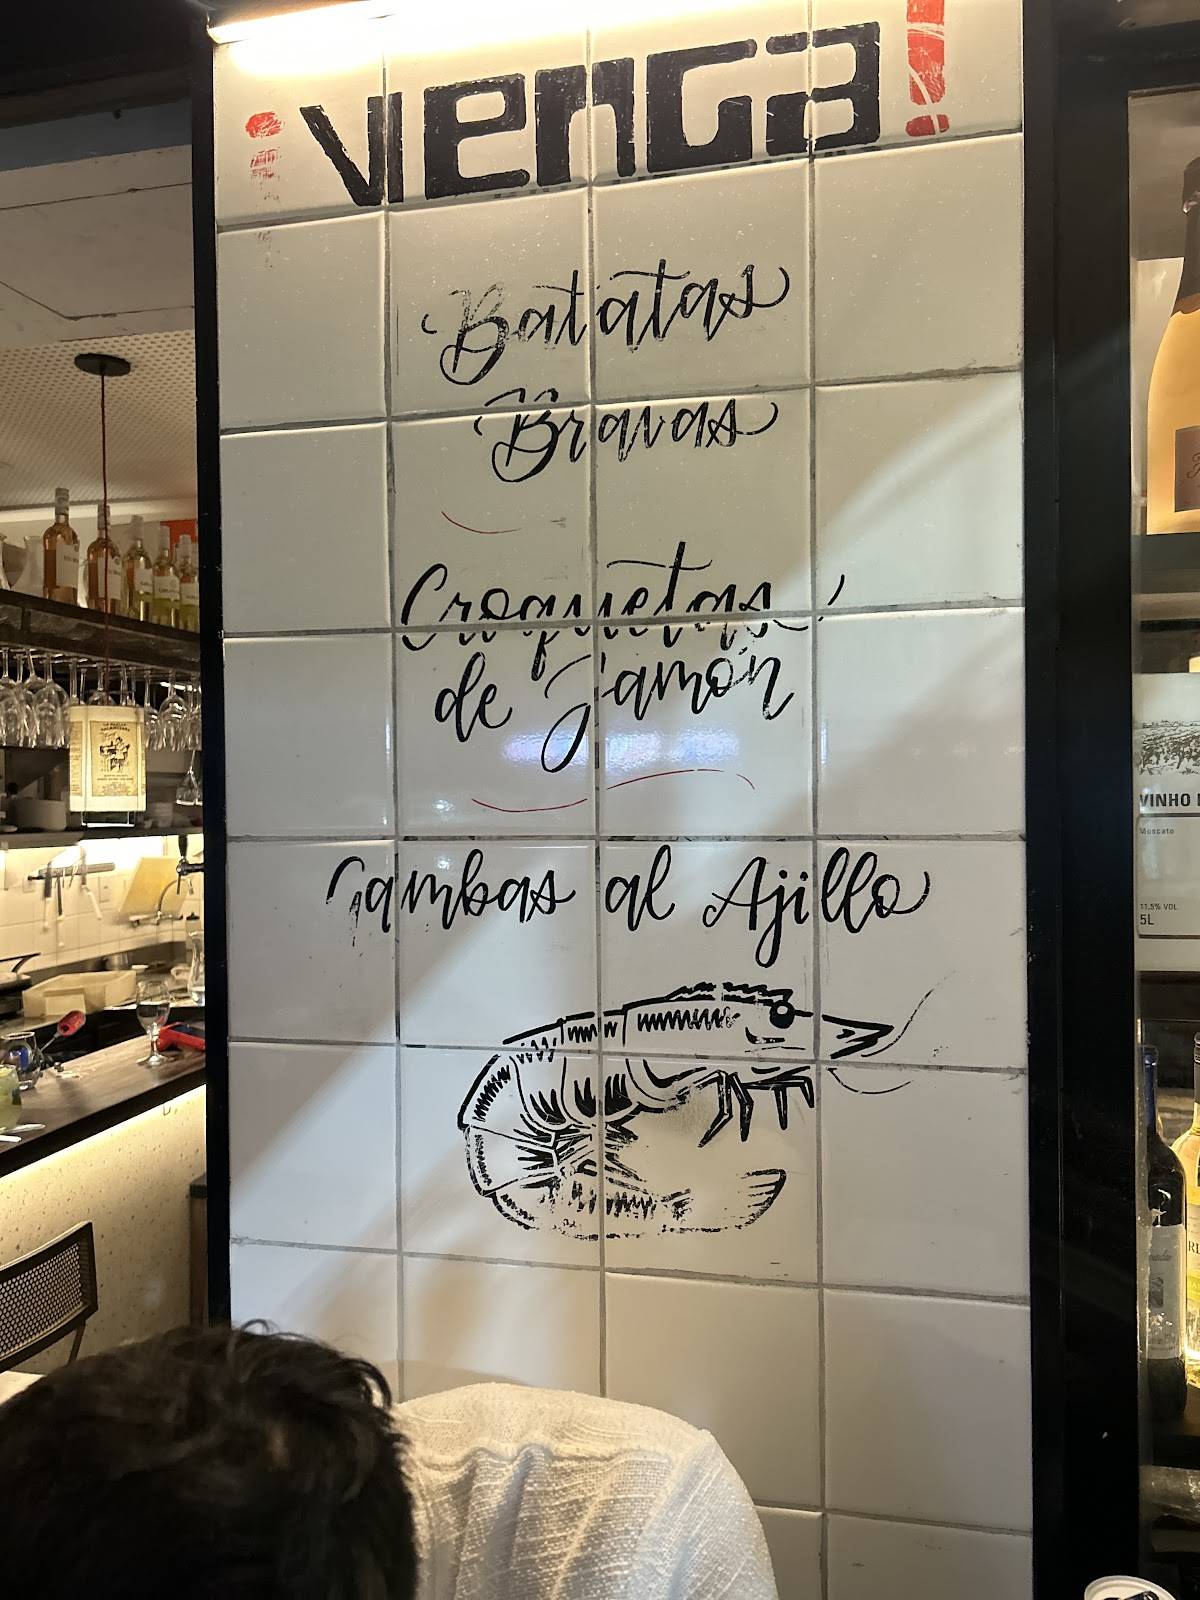 ¡venGa!
Batatas
Bravas
Croquetas
de Jamón
Gambas al Ajillo
VINHO
Moscato
11,5% VOL
5L